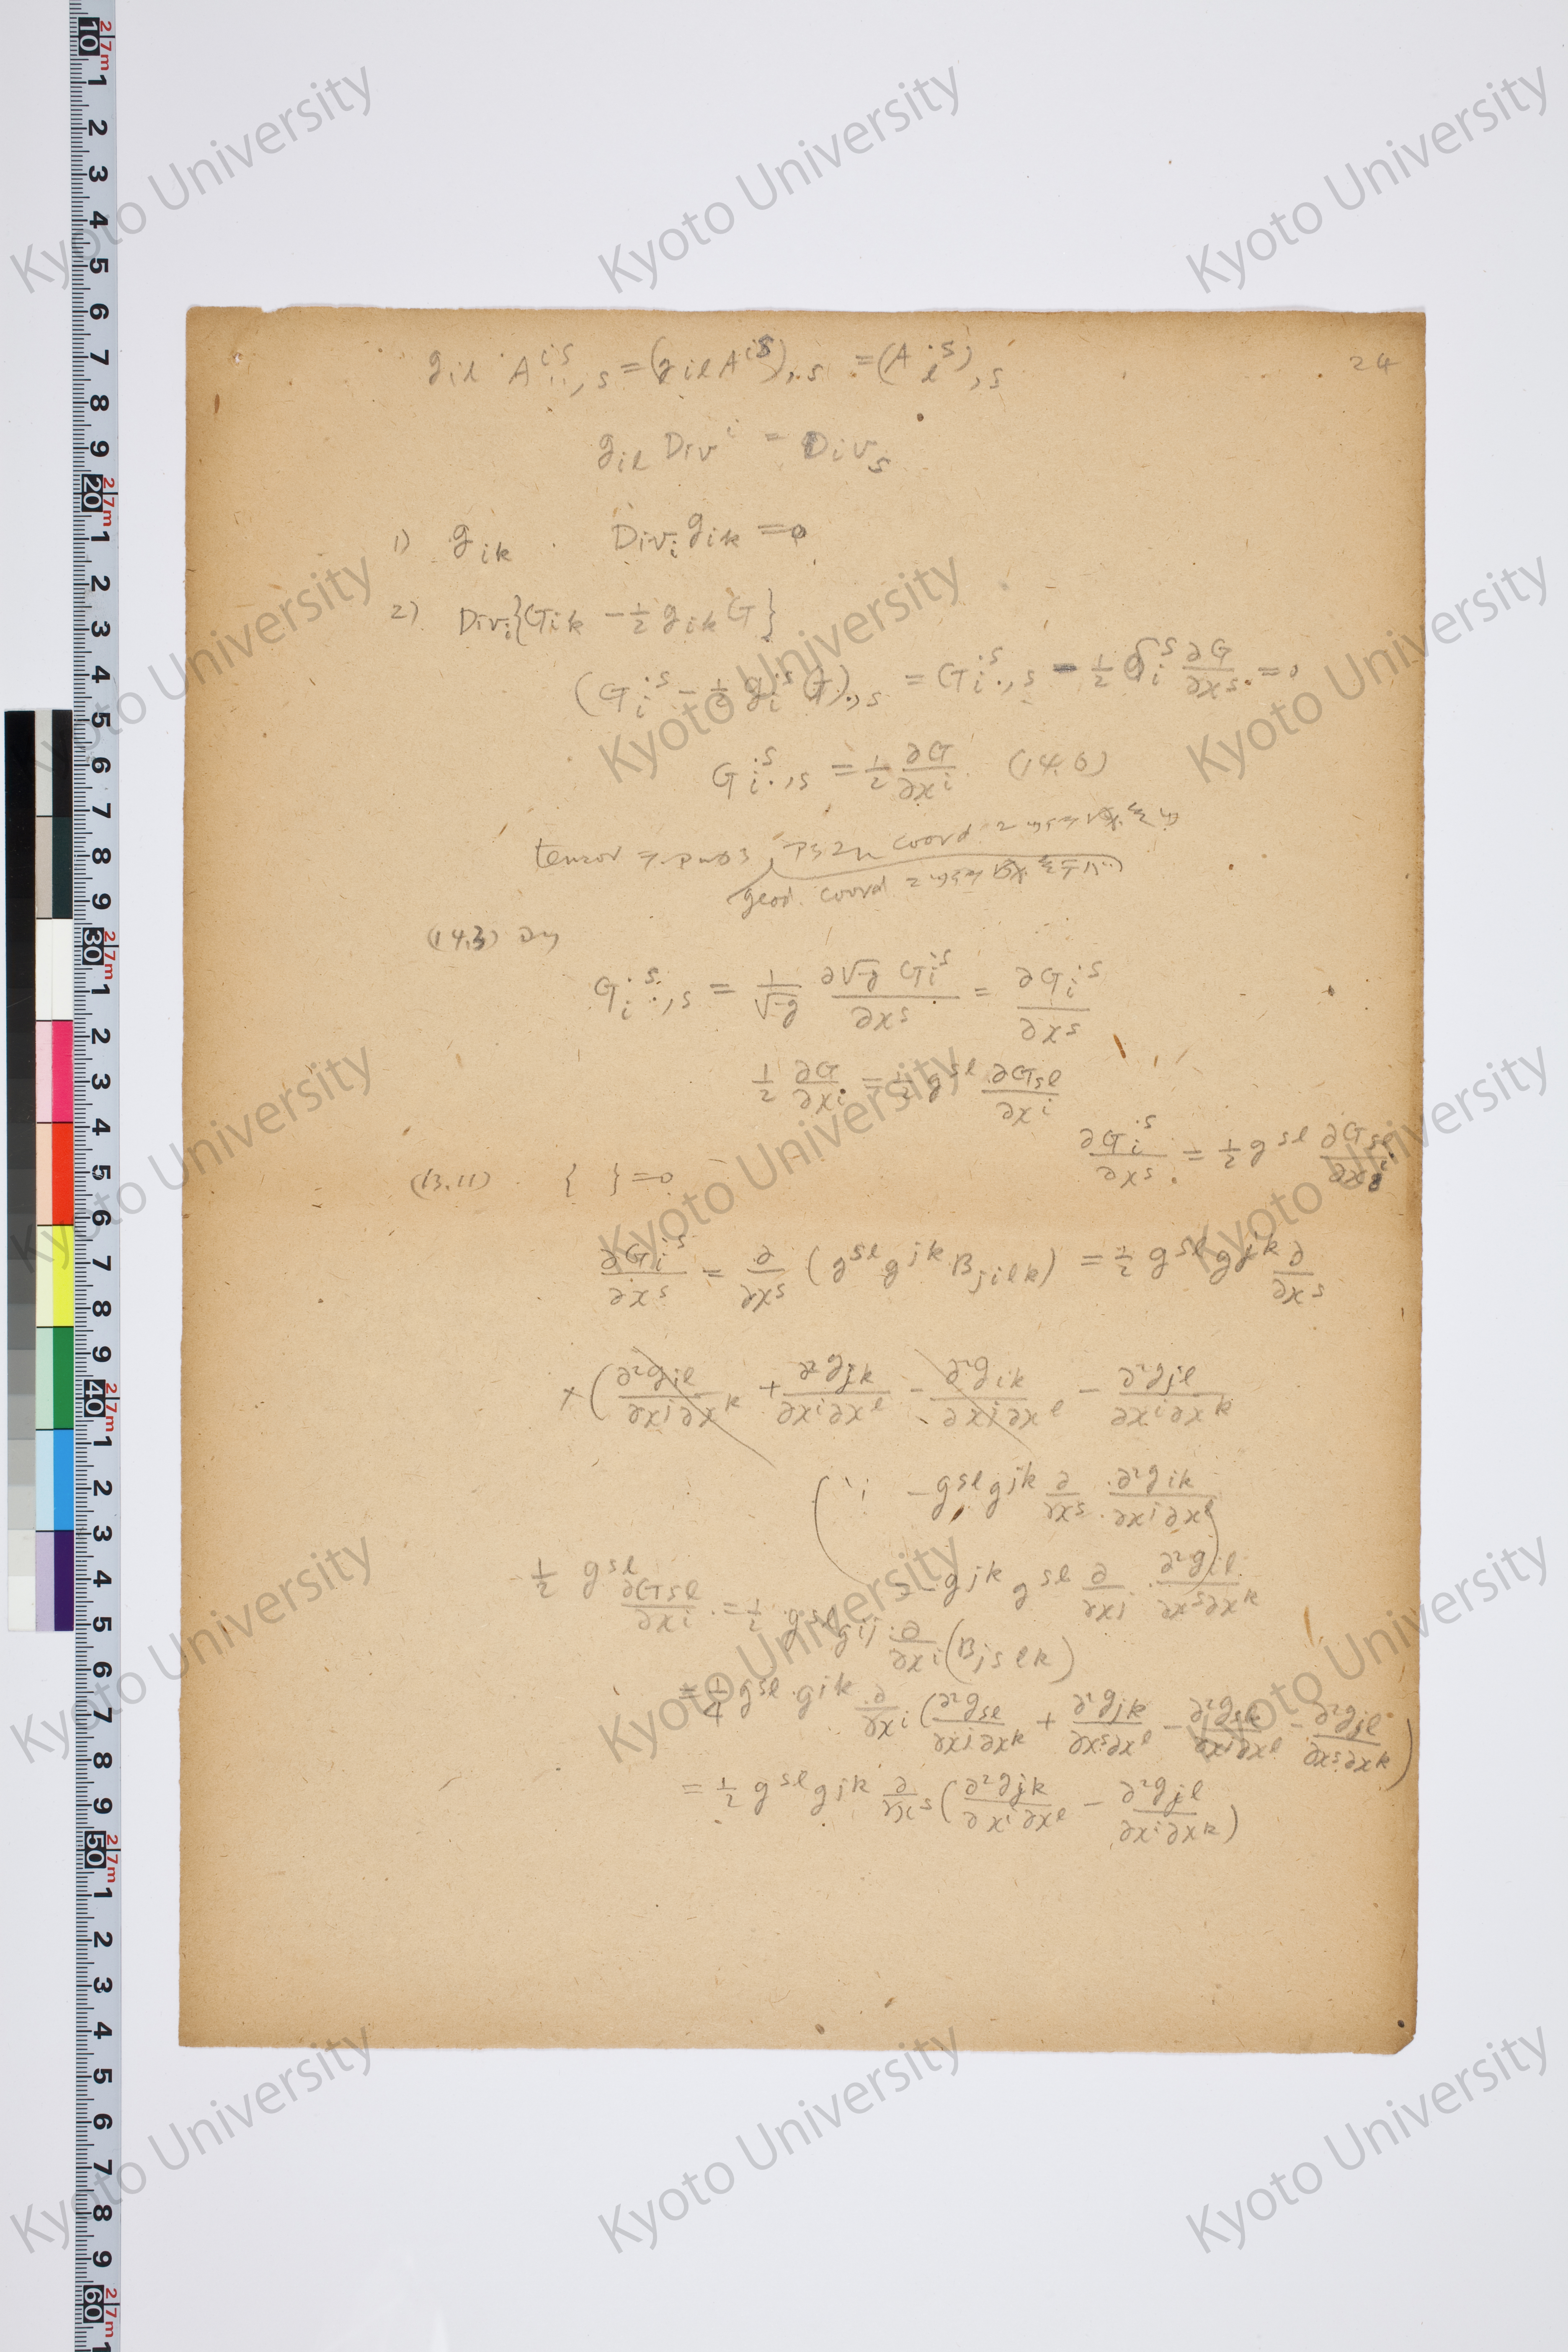 24
g_{il} A^{is}_{..,s} = (g_{il} A^{is})_{,s} = (A_l^{.s})_{,s}
g_{il} Div^i = Div_s
1) g_{ik} Div_i g_{ik} = 0
2) Div_i {G_{ik} - 1/2 g_{ik} G}
(G_i^{.s} - 1/2 g_i^{.s} G)_{.,s} = G_i^{.s}_{.,s} - 1/2 δ_i^s ∂G/∂x^s = 0
G_i^{.s}_{.,s} = 1/2 ∂G/∂x^i (14.6)
tensor coord
geod. coord
(14.3)
G_i^{.s}_{.,s} = 1/√-g ∂√-g G_i^{.s}/∂x^s = ∂G_i^{.s}/∂x^s
1/2 ∂G/∂x^i = 1/2 g^{sl} ∂G_{sl}/∂x^i
∂G_i^{.s}/∂x^s = 1/2 g^{sl} ∂G_{sl}/∂x^i
(13.11) { } = 0
∂G_i^{.s}/∂x^s = ∂/∂x^s (g^{sl} g^{jk} B_{jilk}) = 1/2 g^{sl} g^{jk} ∂/∂x^s
× (∂²g_{il}/∂x^j∂x^k + ∂²g_{jk}/∂x^i∂x^l - ∂²g_{ik}/∂x^j∂x^l - ∂²g_{jl}/∂x^i∂x^k
(∵ -g^{sl} g^{jk} ∂/∂x^s ∂²g_{ik}/∂x^j∂x^l)
= - g^{jk} g^{sl} ∂/∂x^j ∂²g_{il}/∂x^s∂x^k
1/2 g^{sl} ∂G_{sl}/∂x^i = 1/2 g^{sl} g^{ij} ∂/∂x^i (B_{jslk})
= 1/4 g^{sl} g^{jk} ∂/∂x^i (∂²g_{sl}/∂x^j∂x^k + ∂²g_{jk}/∂x^s∂x^l - ∂²g_{sk}/∂x^j∂x^l - ∂²g_{jl}/∂x^s∂x^k)
= 1/2 g^{sl} g^{jk} ∂/∂x^s (∂²g_{jk}/∂x^i∂x^l - ∂²g_{jl}/∂x^i∂x^k)
Kyoto University